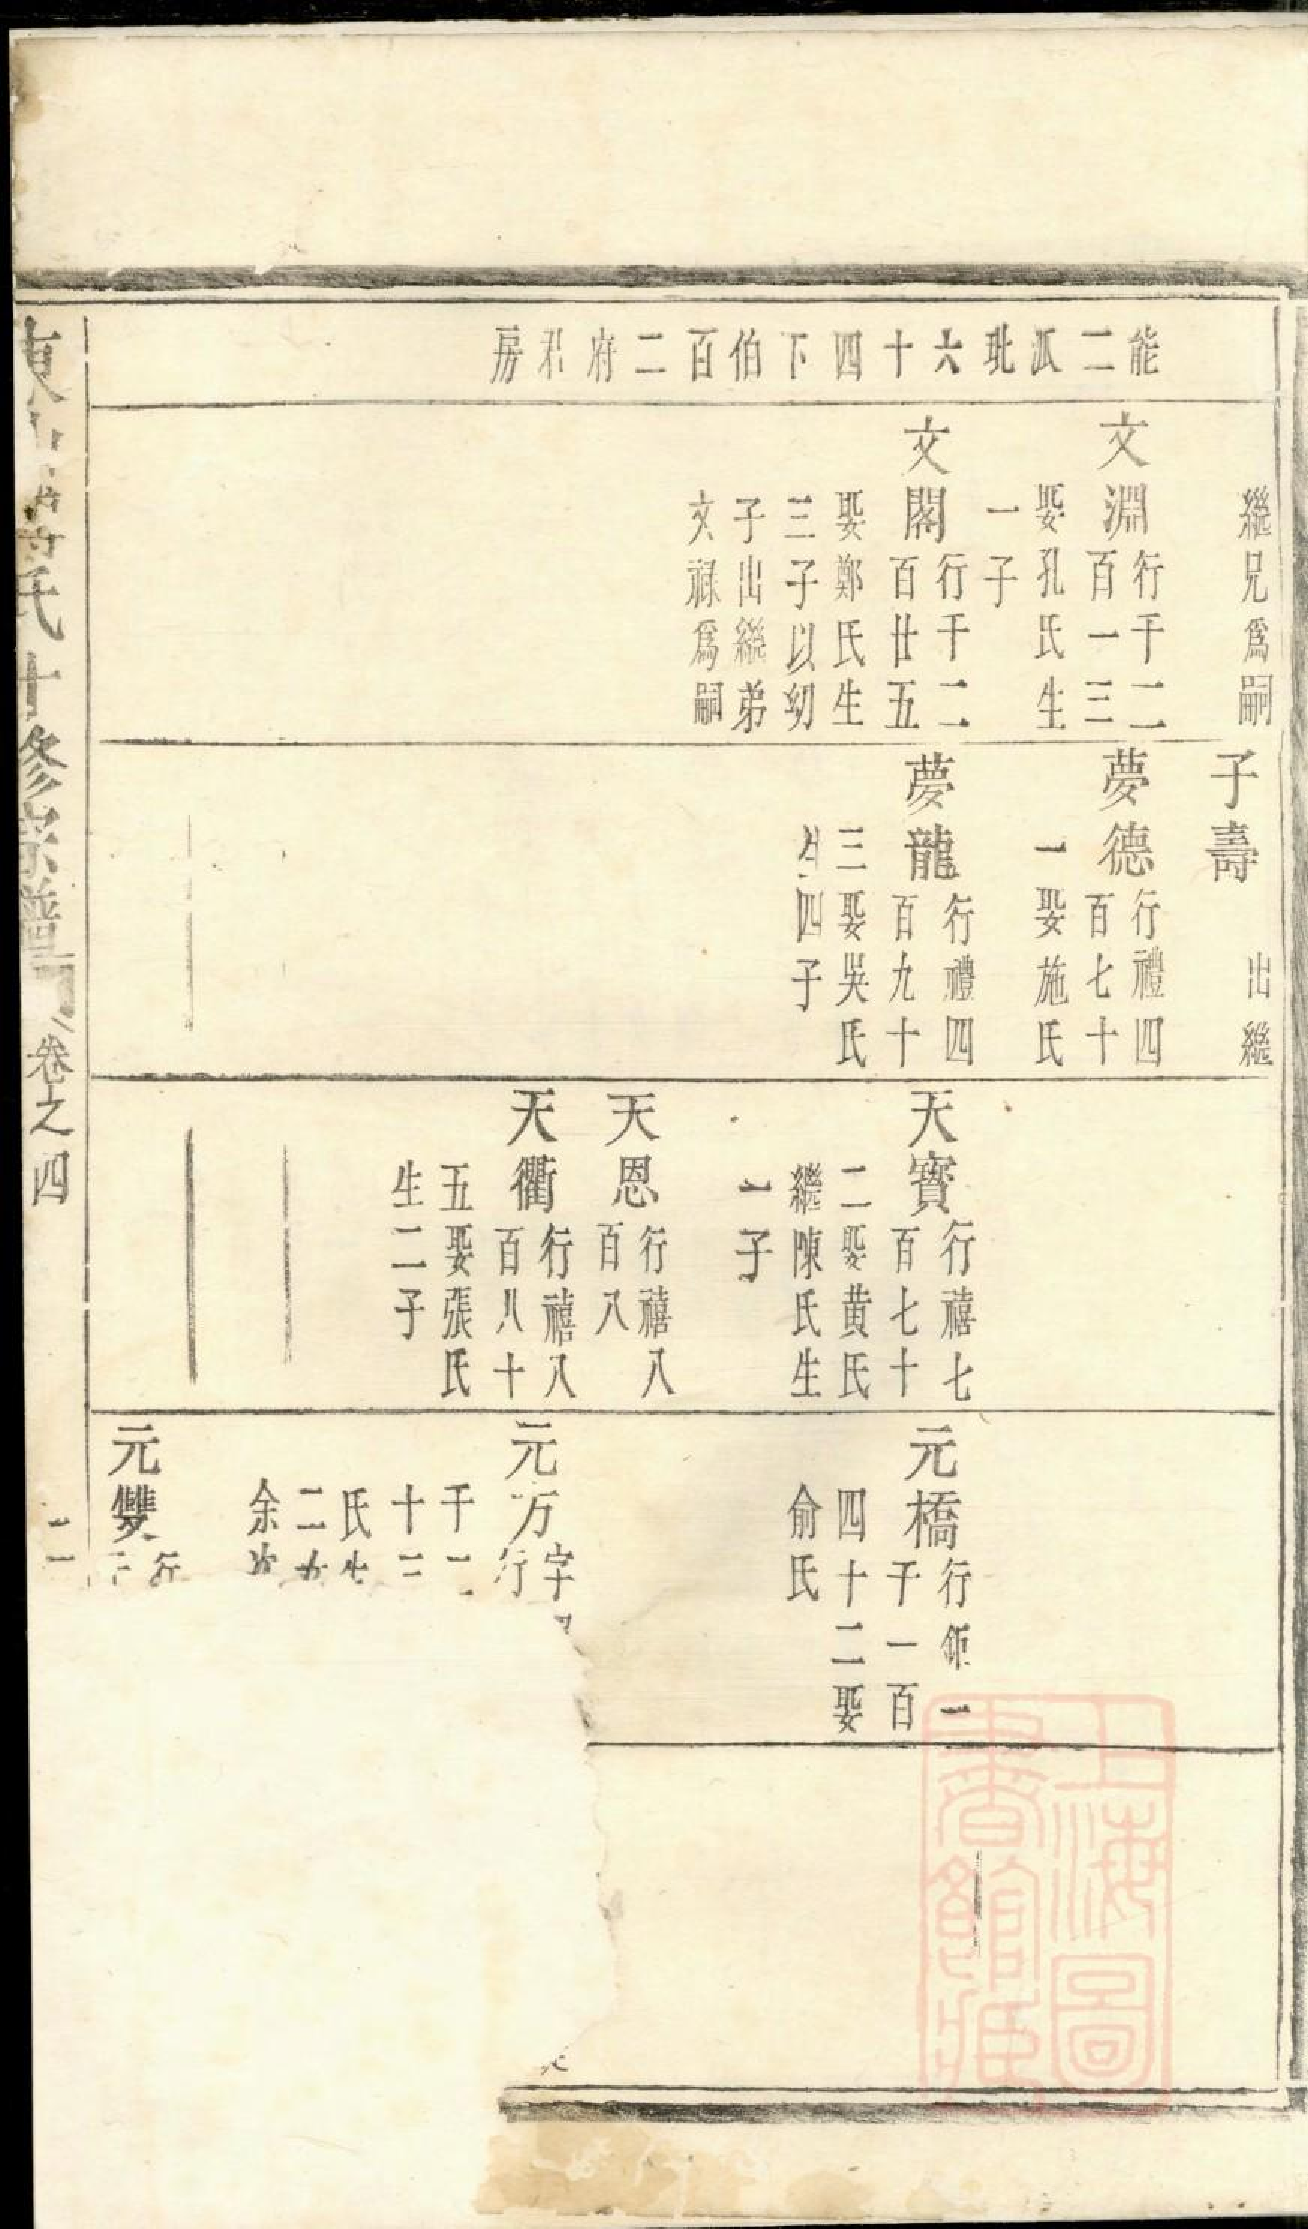 能二派玭六十四下伯百二府君房
繼兄爲嗣
文淵 行千二百一三
娶孔氏生
一子
文閣 行千二百廿五
娶鄭氏生
三子以幼
子出繼弟
文祿爲嗣
子壽 出繼
夢德 行禮四百七十
一娶施氏
夢龍 行禮四百九十
三娶吳氏
生四子
天寶 行禧七百七十
二娶黃氏
繼陳氏生
一子
天恩 行禧八百八
天衢 行禧八百八十
五娶張氏
生二子
元橋 行鉅一千一百
四十二娶
俞氏
元方 字
行
千一
十二
氏生
二女
余
元雙 行
氏十修宗譜 卷之四
二
上海圖書館藏